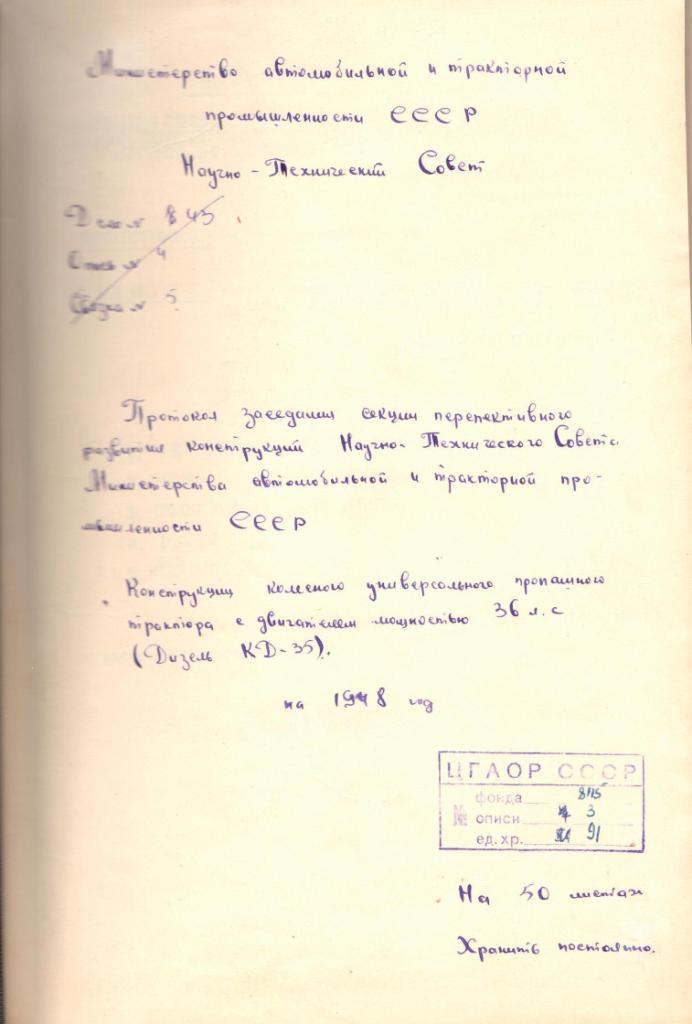 Министерство автомобильной и тракторной
промышленности СССР
Научно-Технический Совет
Дело № 843
Опись № 4
Связка № 5
Протокол заседания секции перепективного
развития конструкций Научно-Технического Совета
Министерства автомобильной и тракторной про-
мышленности СССР
Конструкции колесного универсального пропашного
трактора с двигателем мощностью 36 л.с
(Дизель КД-35).
на 1948 год
ЦГАОР СССР
фонда 8115
№ описи 3
ед. хр. 91
На 50 листах
Хранить постоянно.